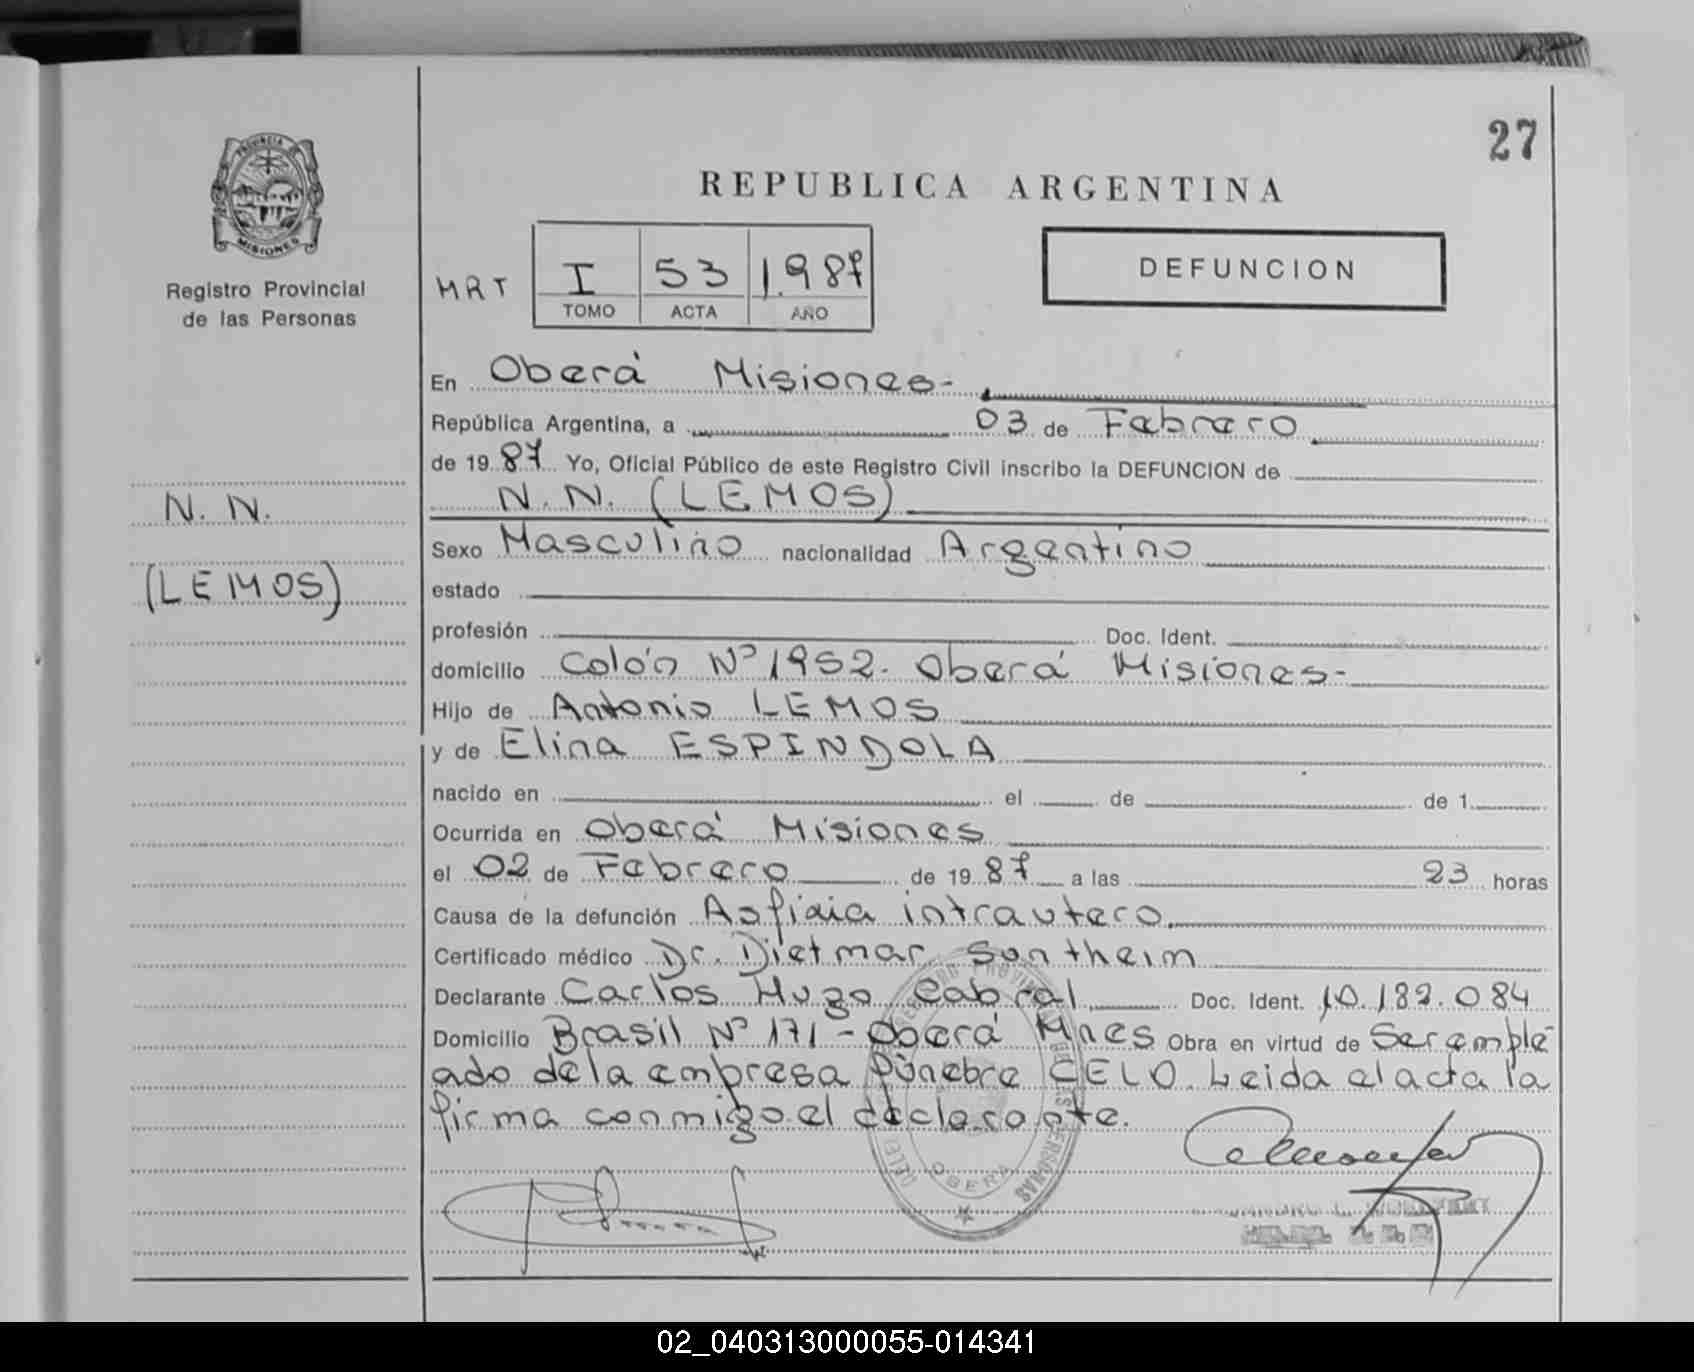 27
PROVINCIA DE
MISIONES
Registro Provincial
de las Personas
REPUBLICA ARGENTINA
MRT I 53 1.987
TOMO ACTA AÑO
DEFUNCION
N. N.
(LEMOS)
En Oberá Misiones-
República Argentina, a 03 de Febrero
de 19 87 Yo, Oficial Público de este Registro Civil inscribo la DEFUNCION de
N. N. (LEMOS)
Sexo Masculino nacionalidad Argentino
estado
profesión Doc. Ident.
domicilio Colón Nº 1952. Oberá Misiones-
Hijo de Antonio LEMOS
y de Elina ESPINDOLA
nacido en el de de 1
Ocurrida en Oberá Misiones
el 02 de Febrero de 19 87 a las 23 horas
Causa de la defunción Asfixia intrautero.
Certificado médico Dr. Dietmar Sontheim
Declarante Carlos Hugo Cabral Doc. Ident. 10.182.084
Domicilio Brasil Nº 171 - Oberá Mnes Obra en virtud de Ser emple
ado de la empresa fúnebre CELO. Leida el acta la
firma conmigo el declarante.
OBERA
02_040313000055-014341